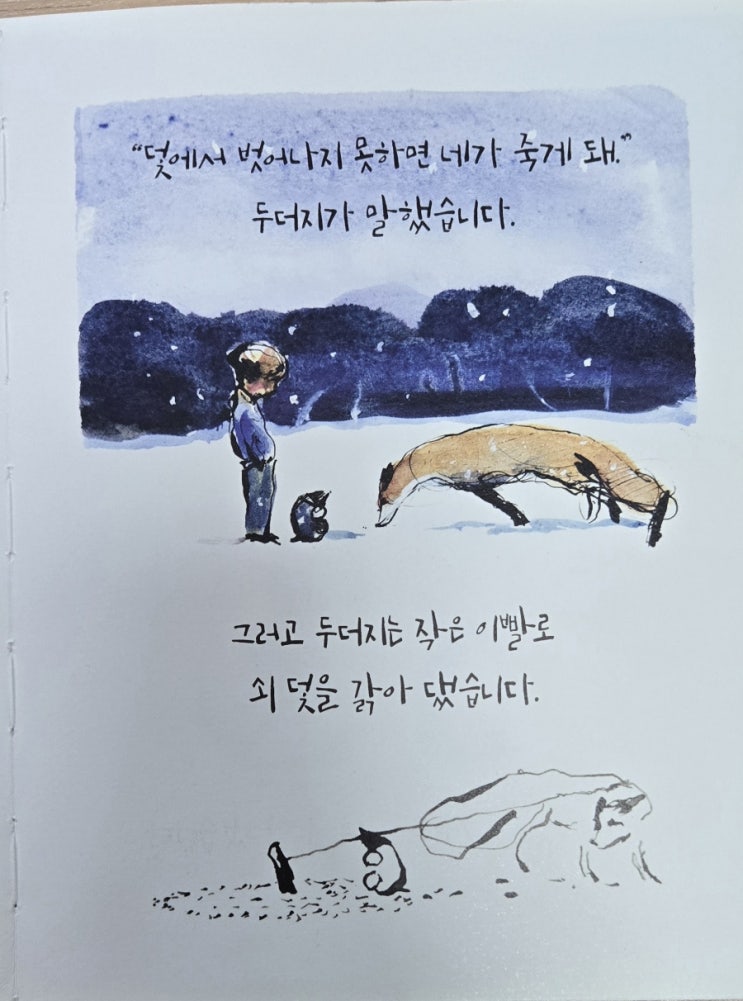 “덫에서 벗어나지 못하면 네가 죽게 돼.”
두더지가 말했습니다.
그러고 두더지는 작은 이빨로
쇠 덫을 갉아 댔습니다.